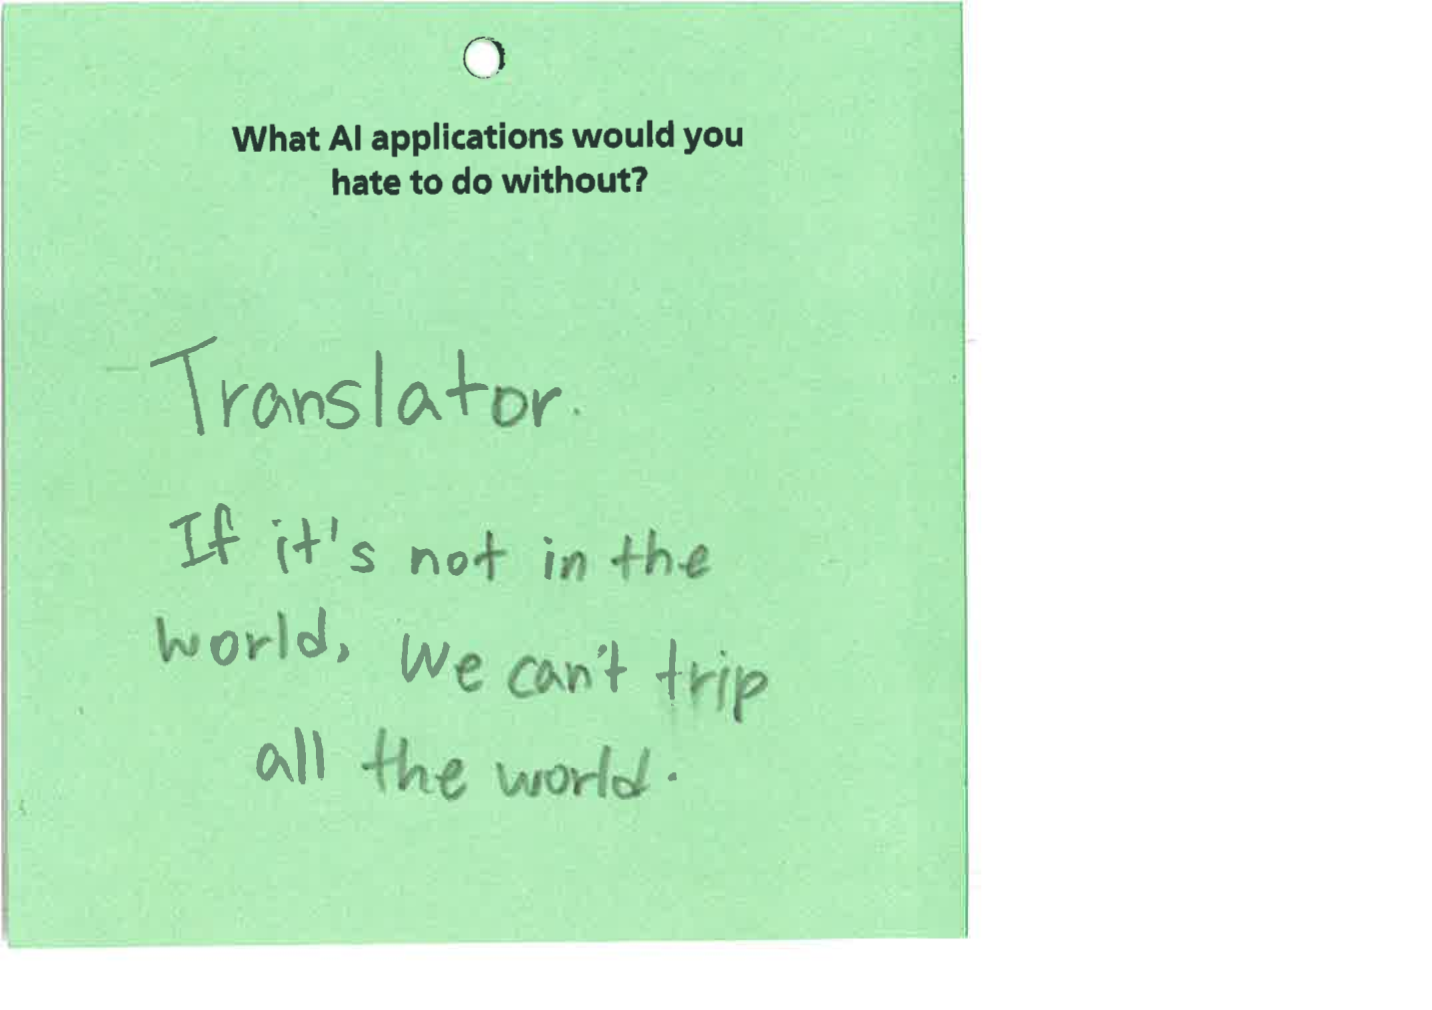 What AI applications would you
hate to do without?
Translator.
If it's not in the
world, we can't trip
all the world.